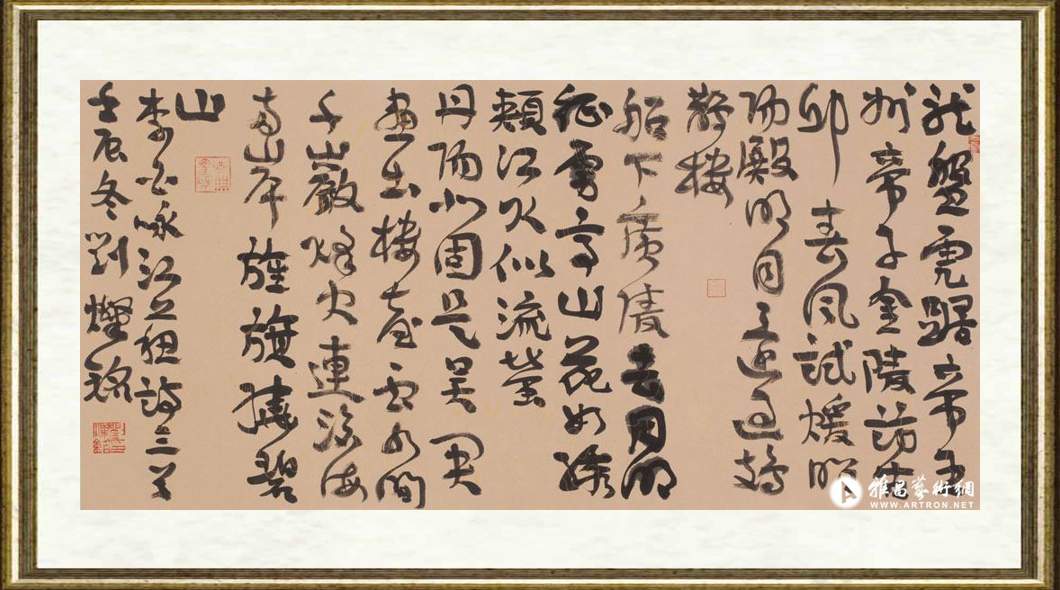 龍盤虎踞帝王
州帝子金陵訪古
邱春風試煖昭
陽殿明月還過鳷
鵲樓
船下廣陵去月明
征虜亭山花如繡
頰江火似流螢
丹陽北固是吳關
畫出樓臺雲水間
千巖烽火連滄海
兩岸旌旗繞碧
山
李白詠江上組詩三首
壬辰冬劉燦銘
雅昌藝術網
WWW.ARTRON.NET